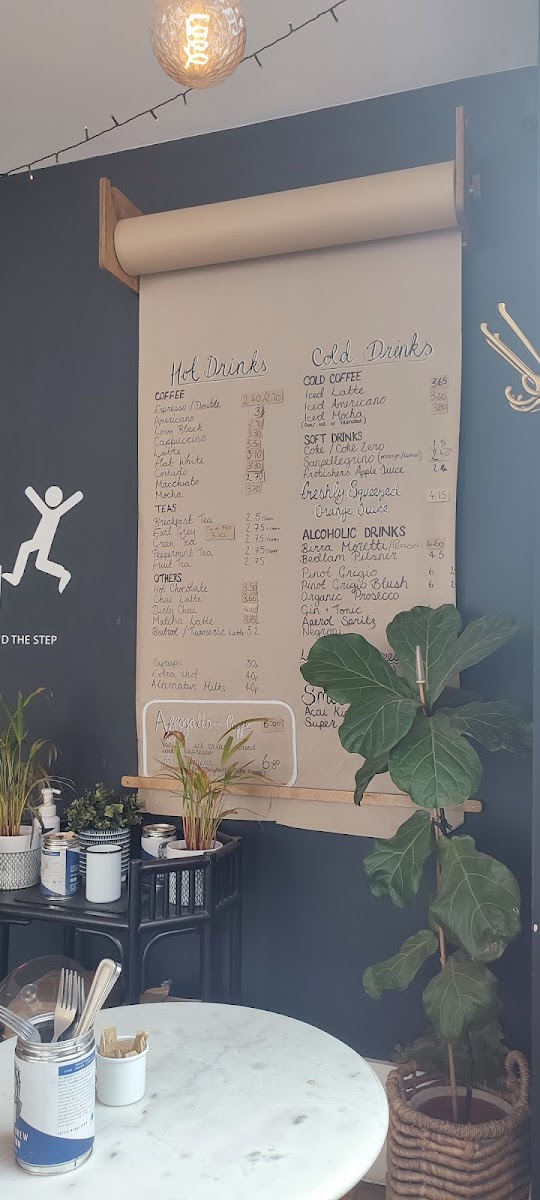 Hot Drinks
COFFEE
Espresso / Double 2.40/2.70
Americano
Long Black
Cappuccino 3.30
Latte
Flat White 3.10
Cortado
Macchiato 2.70
Mocha 3.70
TEAS
Breakfast Tea 2.5
Earl Grey 2.75
Green Tea 2.75
Peppermint Tea 2.75
Fruit Tea 2.75
OTHERS
Hot Chocolate 3.50
Chai Latte 3.65
Dirty Chai
Matcha Latte 3.75
Beetroot / Turmeric Latte 3.2
Syrups 30p
Extra shot 40p
Alternative Milks 40p
Affogato
6.80
Cold Drinks
COLD COFFEE
Iced Latte 3.65
Iced Americano 3.20
Iced Mocha 3.80
(over ice or blended)
SOFT DRINKS
Coke / Coke Zero 1.5
Sanpellegrino (orange/lemon) 2.40
Frobishers Apple Juice
freshly Squeezed 4.15
Orange Juice
ALCOHOLIC DRINKS
Birra Moretti / Peroni 4.60
Bedlam Pilsner 4.5
Pinot Grigio 6
Pinot Grigio Blush 6
Organic Prosecco
Gin + Tonic
Aperol Spritz
Negroni
Acai
Super
D THE STEP